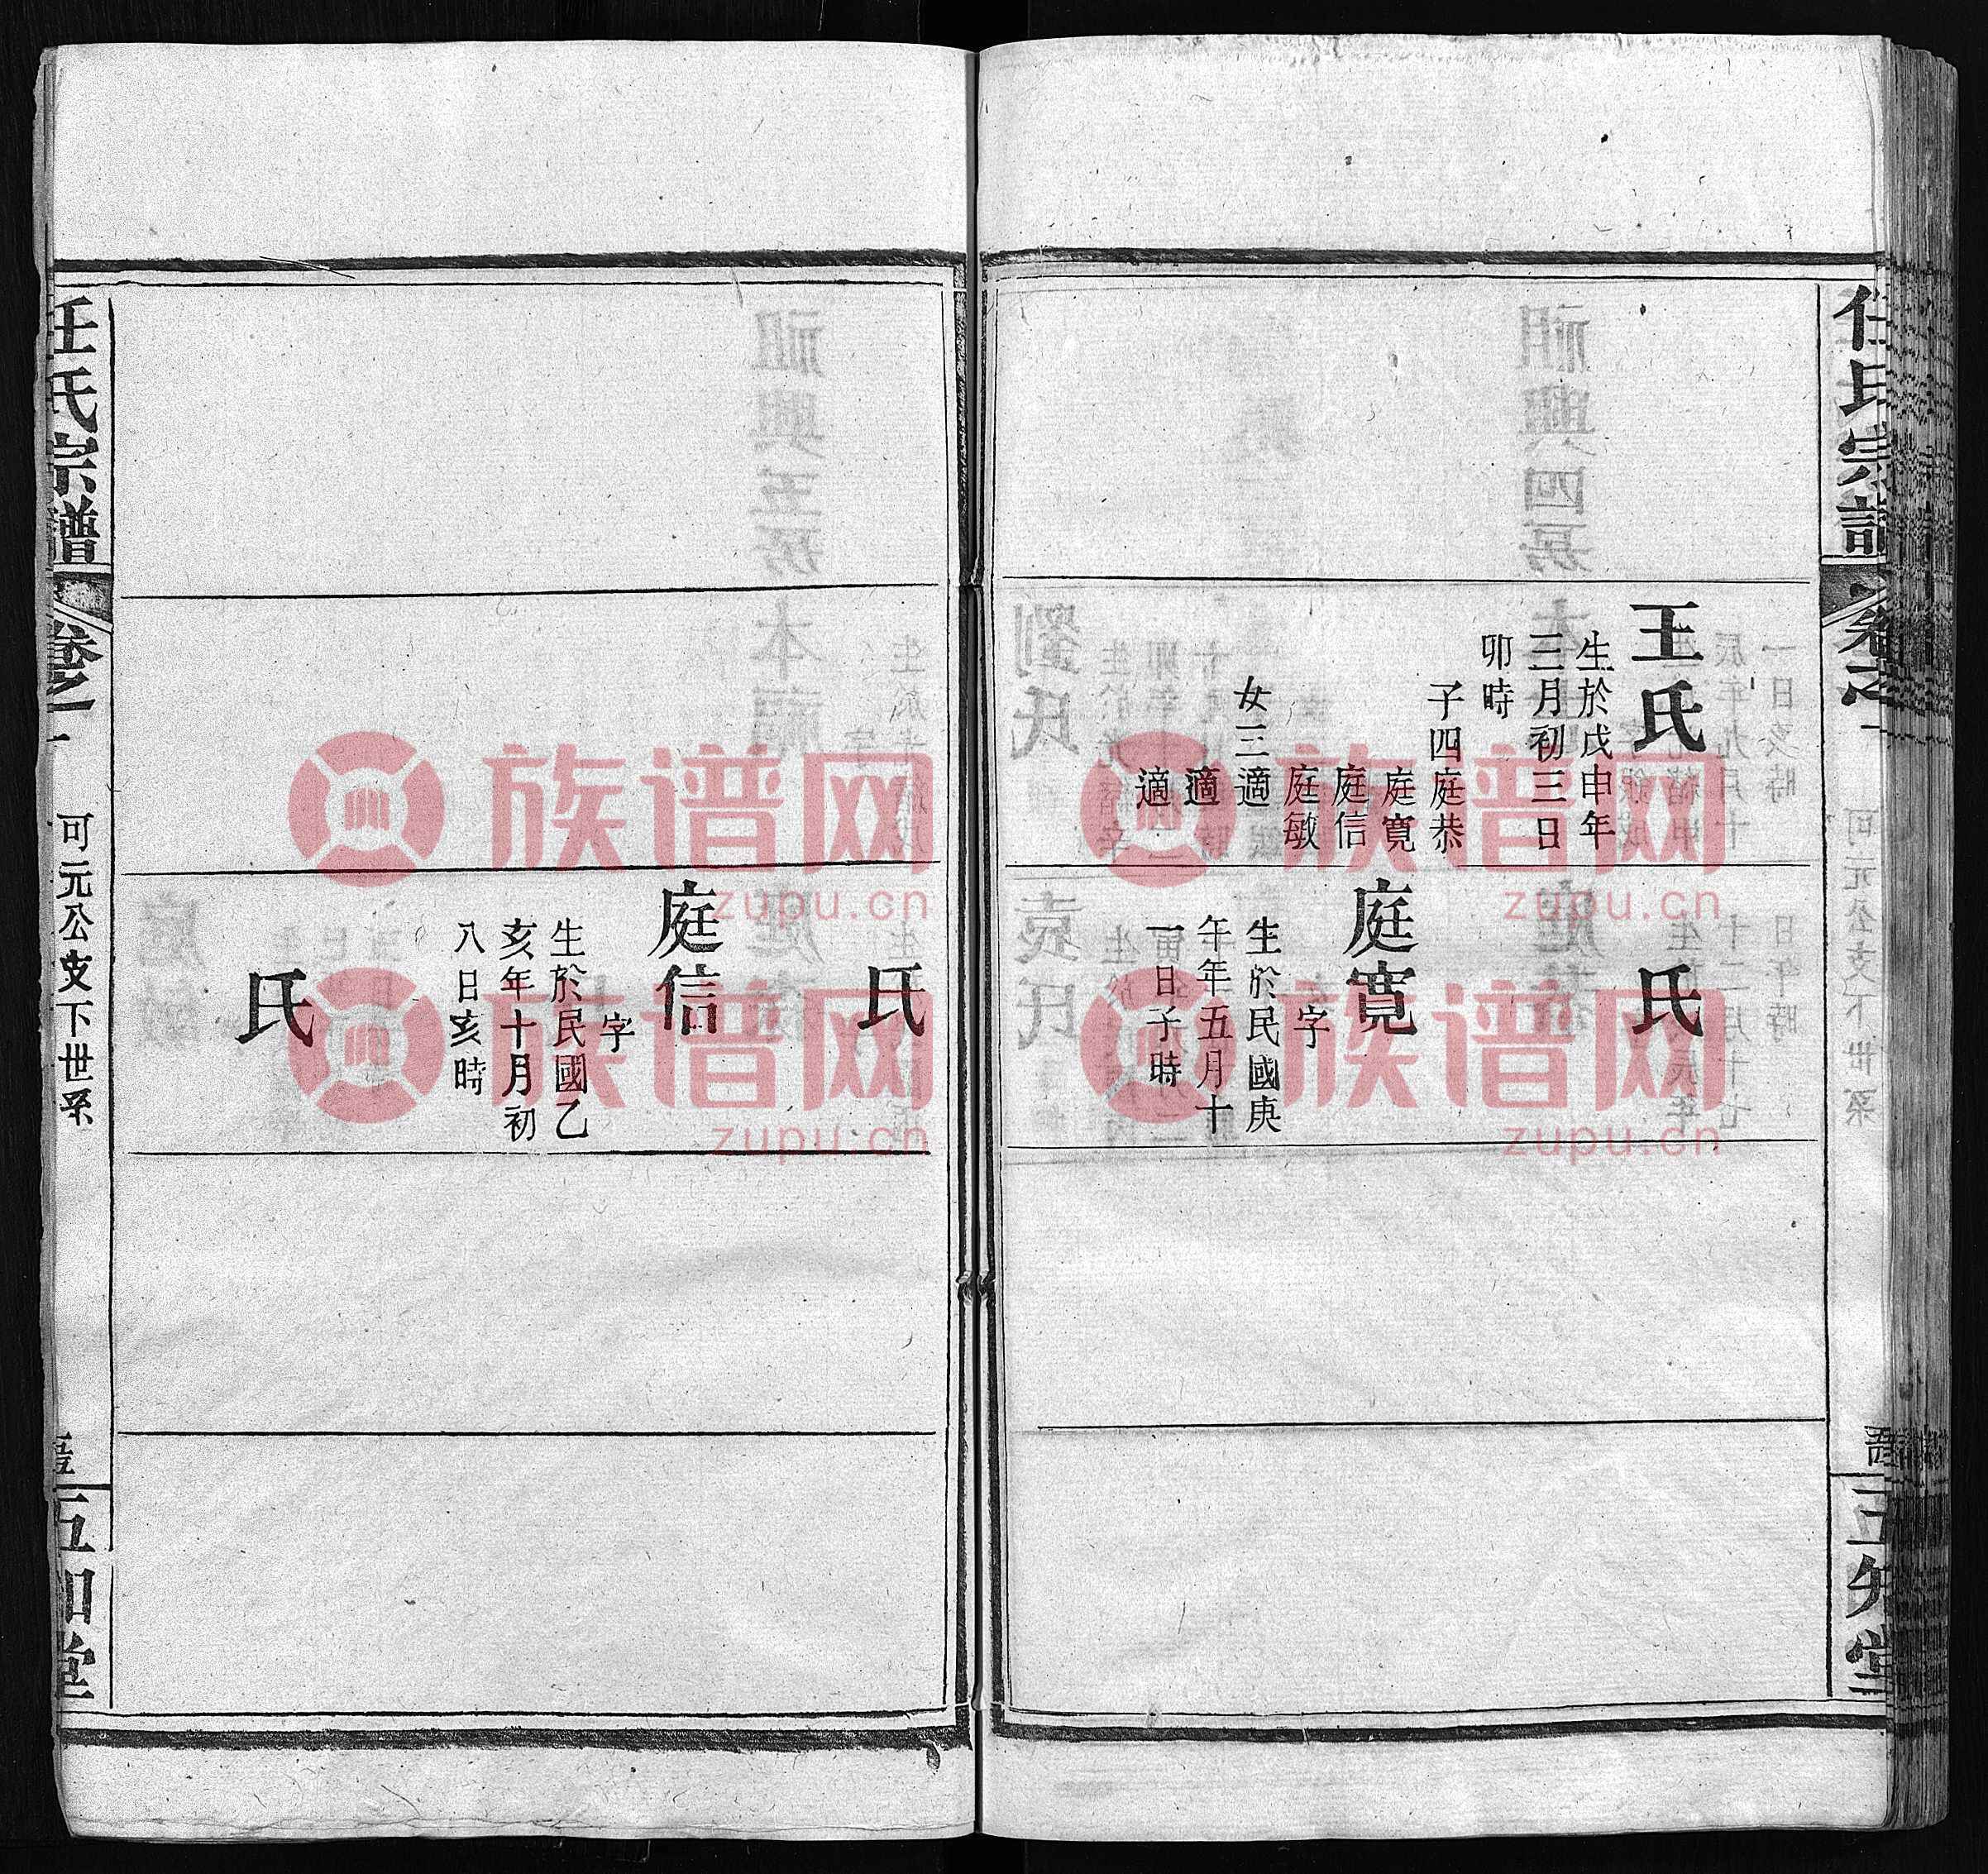 任氏宗譜
王氏
生於戊申年
三月初三日
卯時
子四庭恭
庭寬
庭信
庭敏
女三適
適
適
氏
庭寬
字
生於民國庚
午年五月十
一日子時
氏
庭信
字
生於民國乙
亥年十月初
八日亥時
氏
任氏宗譜
卷之一
可元公支下世系
五知堂
族谱网
zupu.cn
族谱网
zupu.cn
族谱网
zupu.cn
族谱网
zupu.cn